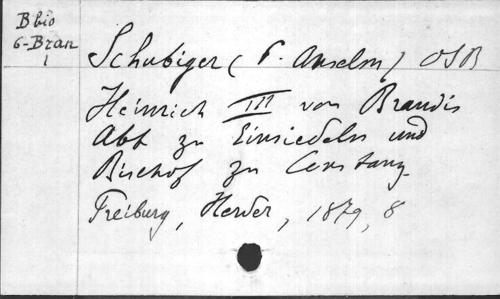 B bio
6-Bran
1
Schubiger (P. Anselm) OSB
Heinrich III von Brandis
Abt zu Einsiedeln und
Bischof zu Constanz
Freiburg, Herder, 1879, 8